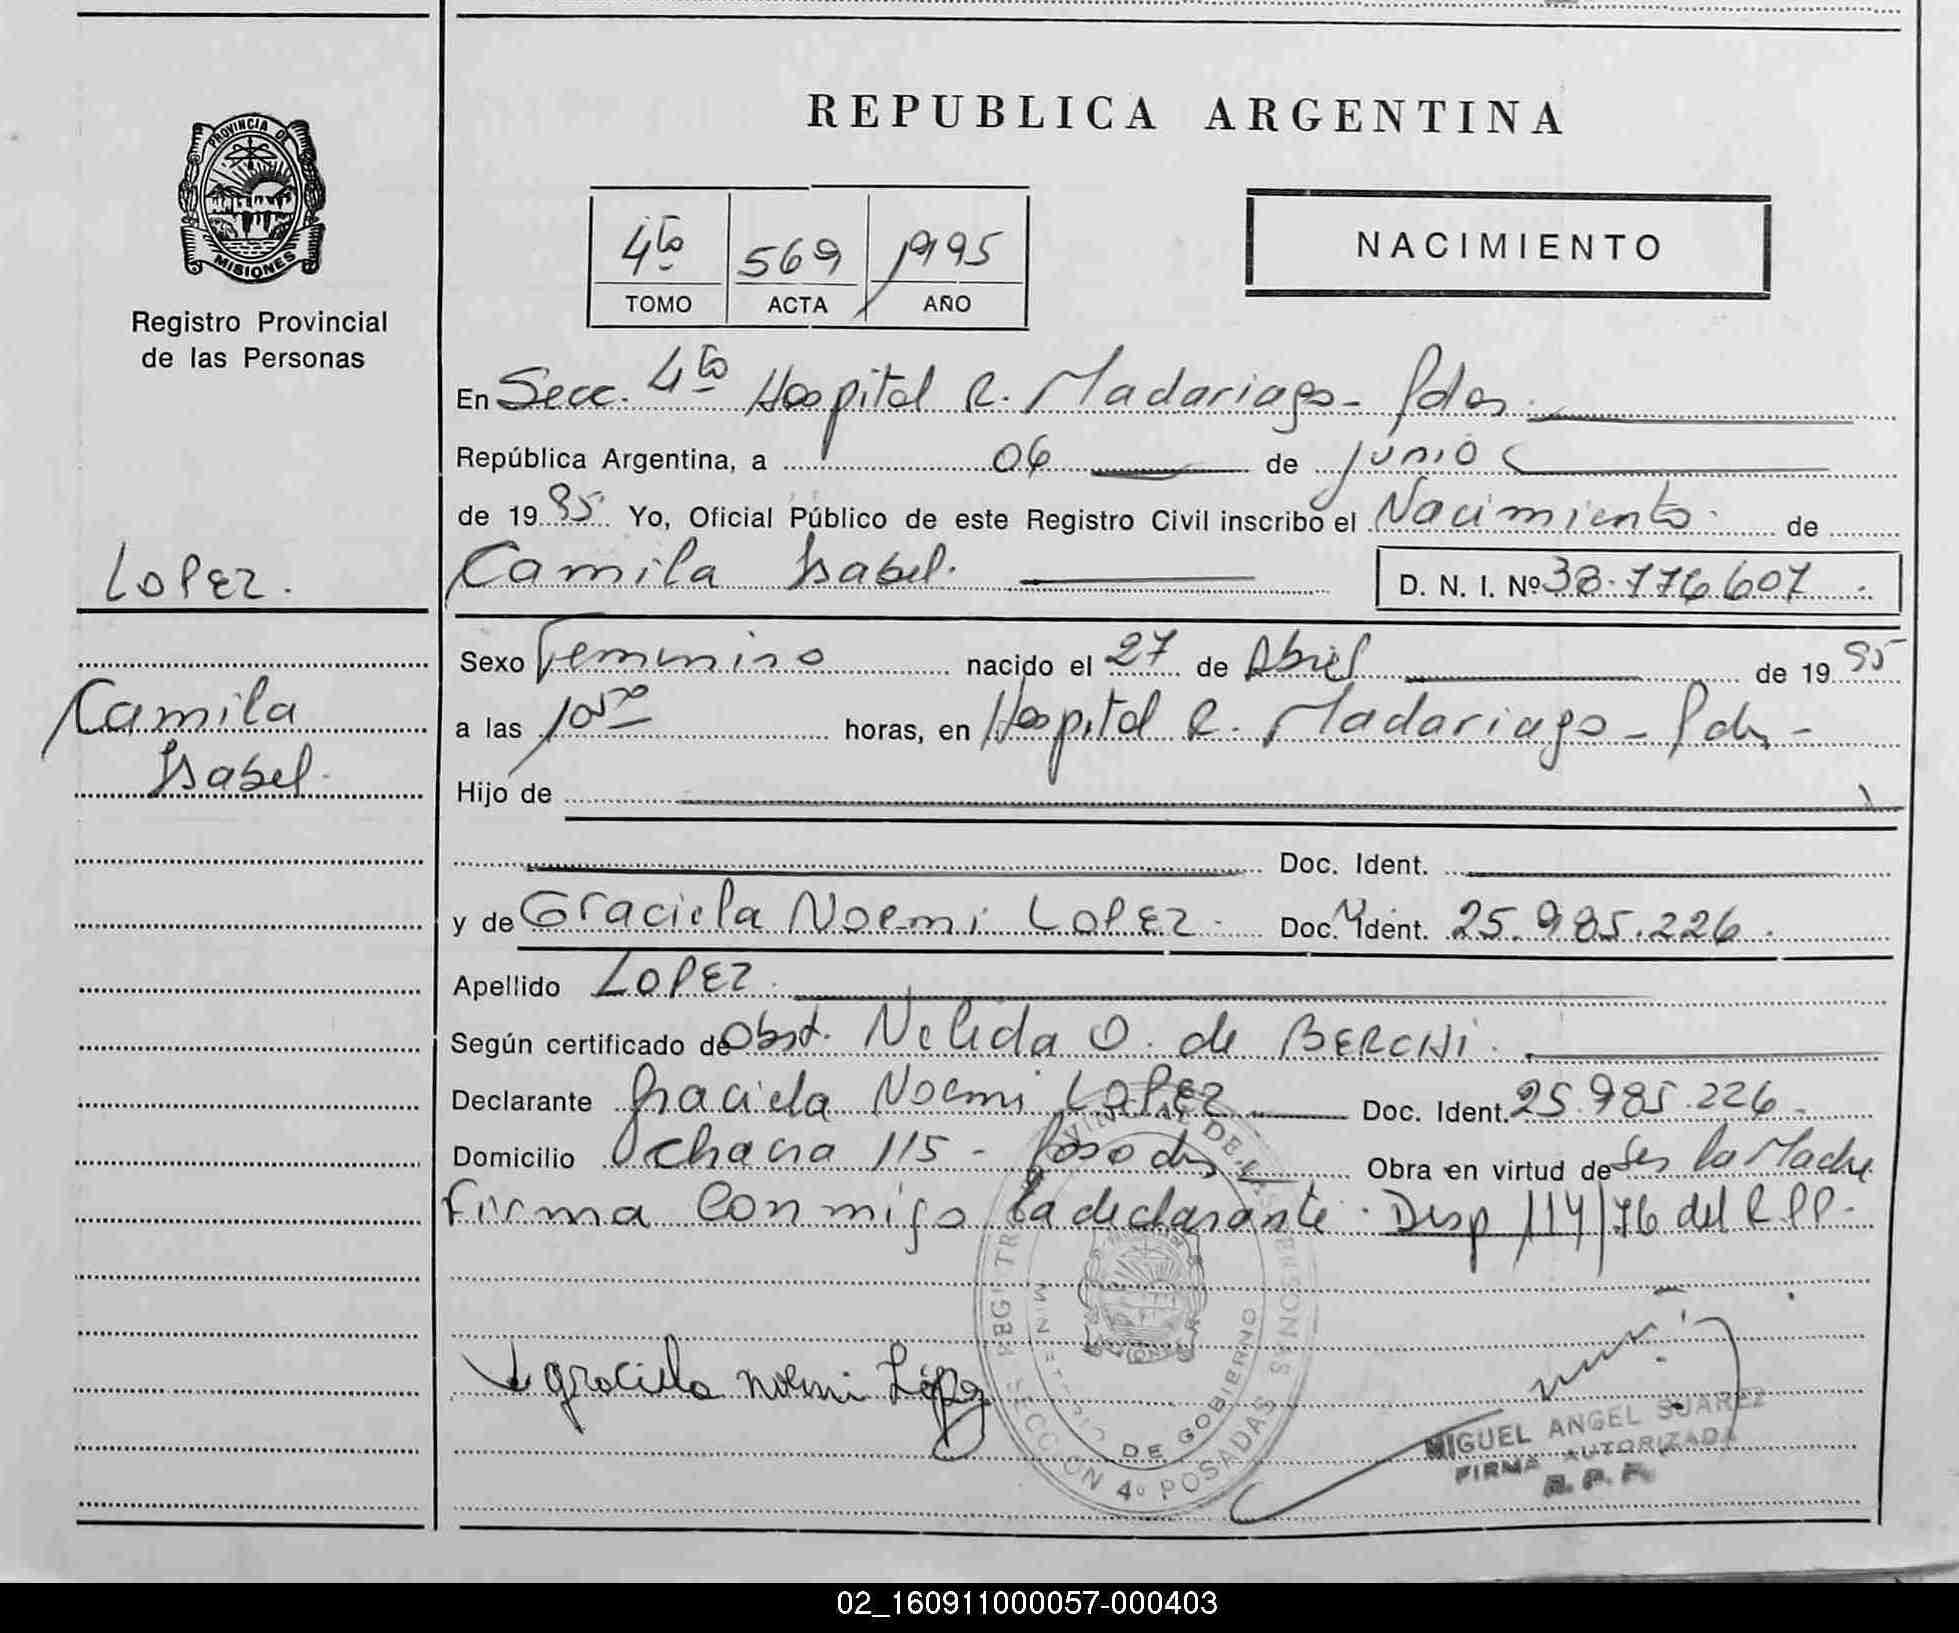 REPUBLICA ARGENTINA
PROVINCIA DE
MISIONES
Registro Provincial
de las Personas
4to 569 1995
TOMO ACTA AÑO
NACIMIENTO
En Secc. 4to Hospital R. Madariaga - Pdas.
República Argentina, a 06 de Junio
de 1995 Yo, Oficial Público de este Registro Civil inscribo el Nacimiento de
LOPEZ.
Camila Isabel. D. N. I. Nº 38.776.607
Sexo Femenino nacido el 27 de Abril de 1995
Camila
Isabel.
a las 10:50 horas, en Hospital R. Madariaga - Pdas -
Hijo de
Doc. Ident.
y de Graciela Noemi LOPEZ. Doc. Ident. 25.985.226.
Apellido LOPEZ.
Según certificado de Obst. Nelida O. de BERCHI.
Declarante Graciela Noemi LOPEZ Doc. Ident. 25.985.226.
Domicilio Chacra 115 - Posadas Obra en virtud de Ser la Madre
Firma conmigo la declarante. Disp 114/76 del RPP.-
graciela noemi López
MINISTERIO DE GOBIERNO
SECCION 4º POSADAS
MIGUEL ANGEL SUAREZ
FIRMA AUTORIZADA
R. P. P.
02_160911000057-000403